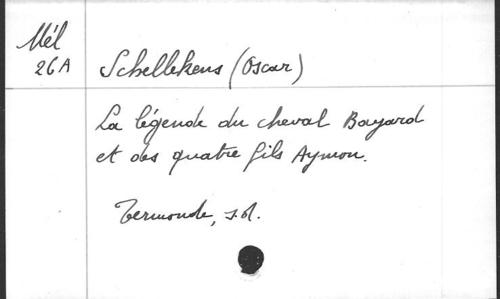 Mél
26A
Schellekens (Oscar)
La légende du cheval Bayard
et des quatre fils Aymon.
Termonde, s.d.